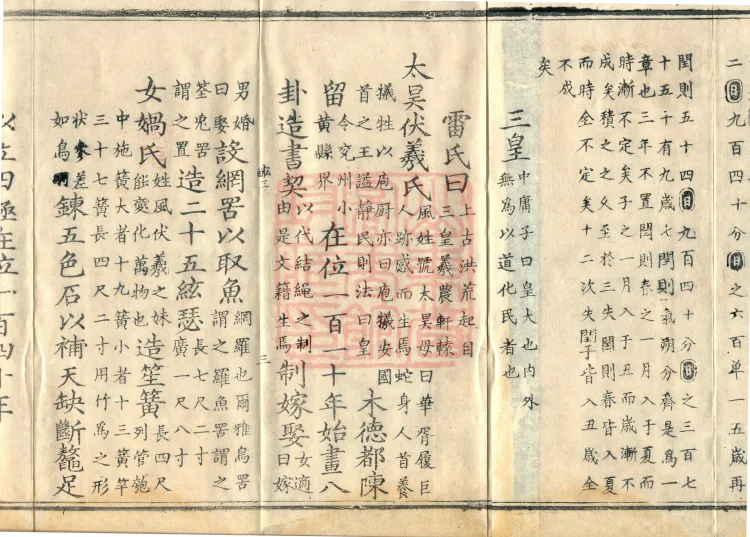 二日九百四十分日之六百单一五歲再
閏則五十四日九百四十分日之三百七
十五千有九歲七閏則氣朔分齊是爲一
章也三年不置閏則春之一月入于夏而
時漸不定矣子之一月入于丑而歲漸不
成矣積之之久至於三失閏則春皆入夏
而時全不定矣十二次失閏子皆入丑歲全
不成
矣
三皇
中腐子曰皇大也内外
無為以道化民者也
雷氏曰
上古洪荒起自
三皇羲農軒轅
太昊伏羲氏
風姓號太昊母曰華胥履巨
人跡感而生焉蛇身人首養
犧牲以庖厨亦曰庖犧安國
首之王謚靜民則法曰皇
木德都陳
留
今兗州小
黃縣界
在位一百一十年始畫八
卦造書契
以代結繩之制
由是文籍生焉
制嫁娶
女適
曰嫁
三
男婚
曰娶
設網罟以取魚
網羅也爾雅鳥罟
謂之羅魚罟謂之
筌兎罟
謂之罝
造二十五絃瑟
長七尺二寸
廣一尺八寸
女媧氏
姓風伏羲之妹
能變化萬物也
造笙簧
長四尺
列管匏
中施簧大者十九簧小者十三簧竽
三十七簧長四尺二寸用竹爲之形
状參差
如鳥
鍊五色石以補天缺斷鼇足
以立四極在位一百四十年